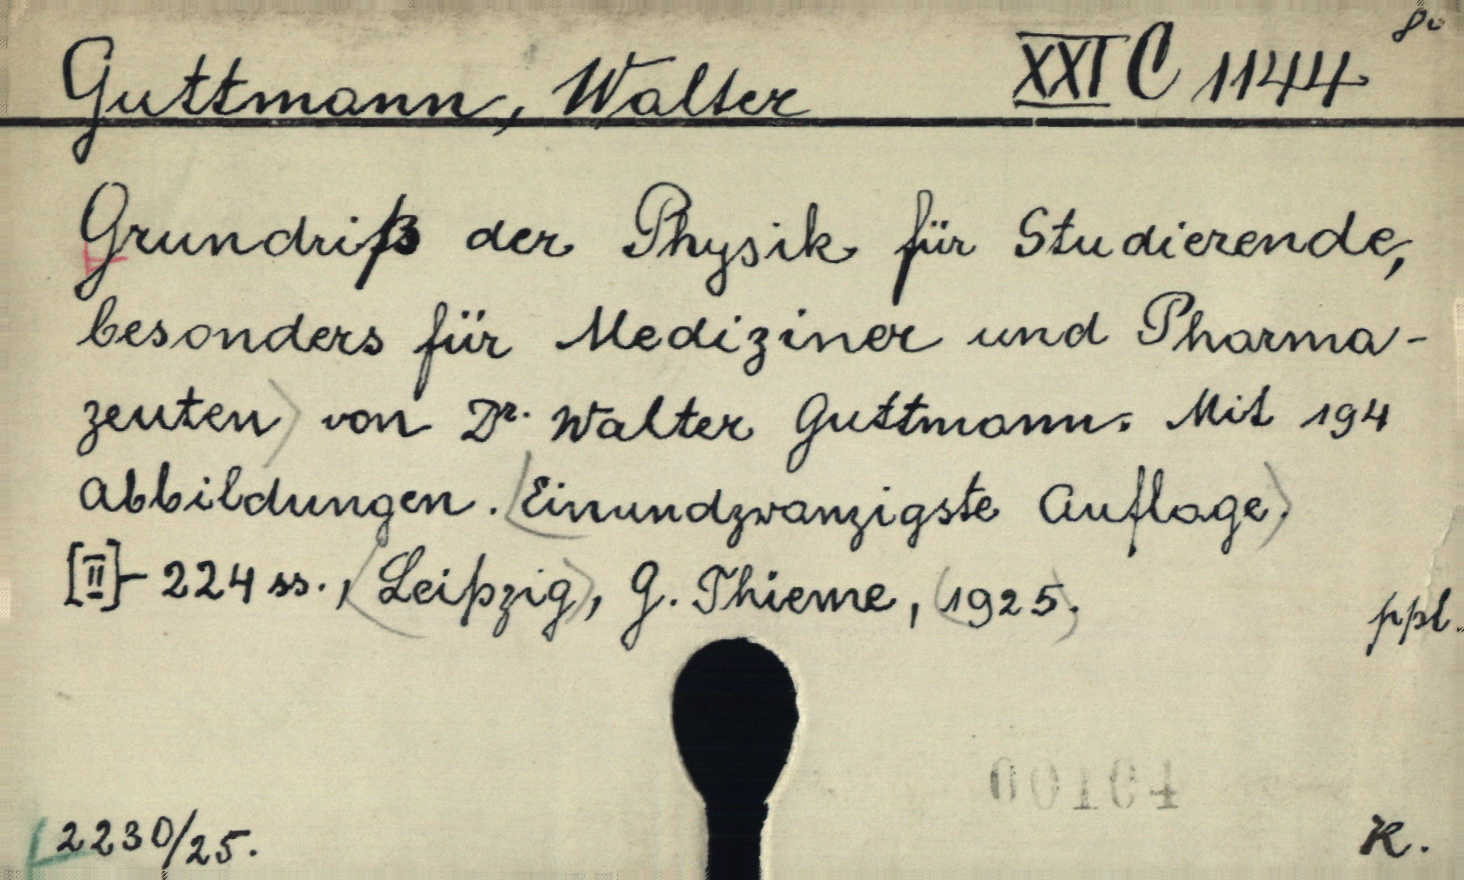 8°
Guttmann, Walter XXI C 1144
Grundriß der Physik für Studierende,
besonders für Mediziner und Pharma-
zeuten) von Dr. Walter Guttmann. Mit 194
Abbildungen. (Einundzwanzigste Auflage).
[II]-224 ss., (Leipzig), G. Thieme, (1925).
ppl.
00104
2230/25.
K.